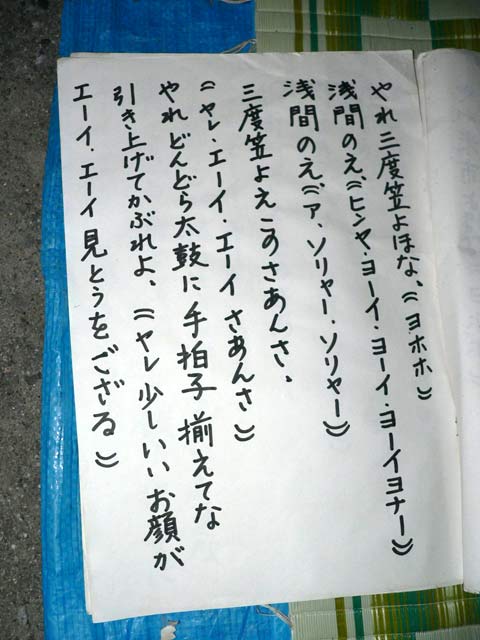 やれ三度笠よほな、《ヨホホ》
浅間のえ《ヒンヤ・ヨーイ・ヨーイ・ヨーイヨナー》
浅間のえ《ア、ソリャー、ソリャー》
三度笠よえこのさあんさ、
《ヤレ・エーイ・エーイさあんさ》
やれどんどら太鼓に手拍子揃えてな
引き上げてかぶれよ、《ヤレ少しいいお顔が
エーイ・エーイ見とうをござる》